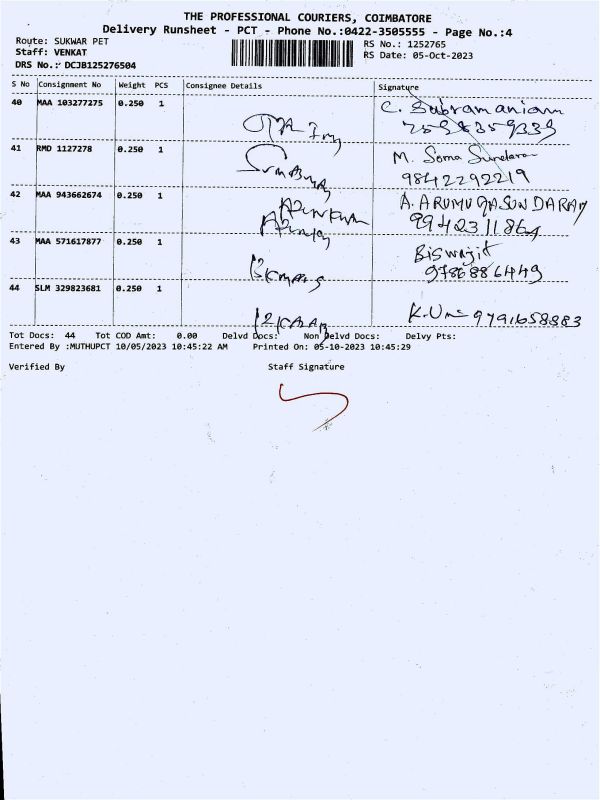 THE PROFESSIONAL COURIERS, COIMBATORE
Delivery Runsheet - PCT - Phone No.:0422-3505555 - Page No.:4
Route: SUKWAR PET
RS No.: 1252765
Staff: VENKAT
RS Date: 05-Oct-2023
DRS No.: DCJB125276504
S No Consignment No Weight PCS Consignee Details Signature
40 MAA 103277275 0.250 1 C. Subramaniam
41 RMD 1127278 0.250 1 M. Soma Sundaram
9842292219
42 MAA 943662674 0.250 1 A. ARUMUGASUNDARAM
9942311864
43 MAA 571617877 0.250 1 Biswajit
9786886449
44 SLM 329823681 0.250 1 K. Uma 9791658883
Tot Docs: 44 Tot COD Amt: 0.00 Delvd Docs: Non Delvd Docs: Delvy Pts:
Entered By :MUTHUPCT 10/05/2023 10:45:22 AM Printed On: 05-10-2023 10:45:29
Verified By Staff Signature